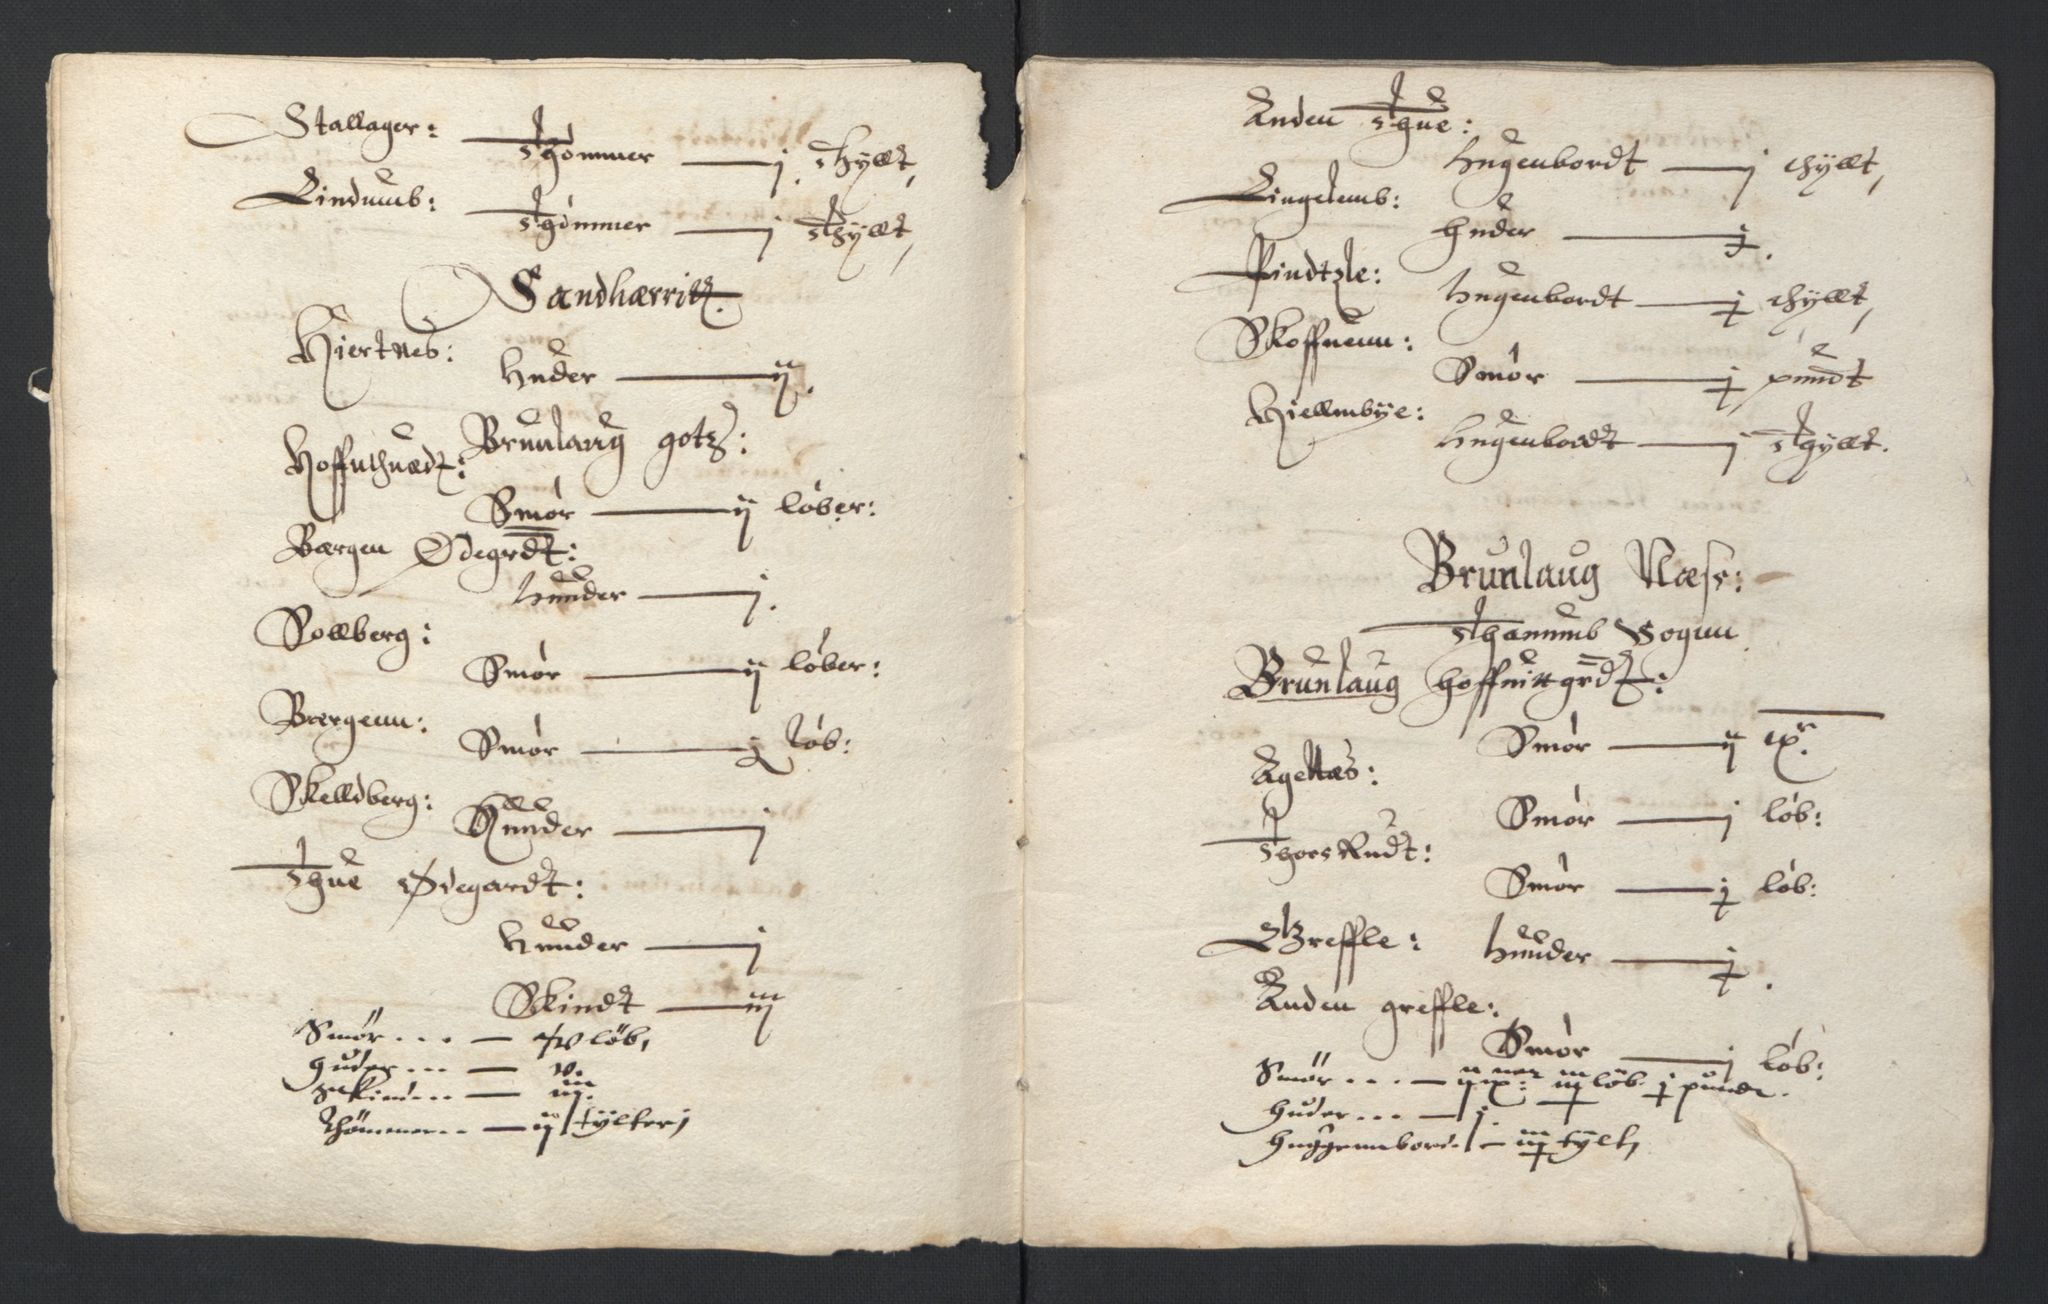 Stallager:
Thømmer — j thyllt,
Lindumb:
Thømmer — j thyllt,
Sandhærritz.
Hiertnes:
Huder — ij.
Brunlaug gotz:
Hoffuthuedt:
Smør — ij løber:
Bærgen Ødegrdt:
Huuder — j.
Sollberg:
Smør — ij løber:
Bærgenn:
Smør — j løb:
Skelldberg:
Huuder — j
Thue Ødegardt:
Huuder — j
Skindt — iij
Smör... — løb,
Huder... — v.
Skind... — iij.
Thömmer.. — ij tylter,
Anden Thue:
Hugenbordt — j thyllt,
Lingelemb:
Huder — j.
Pindtzle:
Hugenbordt — j thyllt,
Skoffuenn:
Smør — j pundt
Hiellmbye:
Hugenbordt — j thyllt.
Brunlaug Næss:
Thanumb Sognn
Brunlaug hoffuittgrdt:
Smør — ij
Agenæs:
Smør — j løb:
Thorsrudt:
Smør — j løb:
Greffle:
Huuder — j.
Anden greffle:
Smør — j løb:
Smör... — ij iij löb. j pundt.
Huder... — j
Huggenbord. — iij tylt,